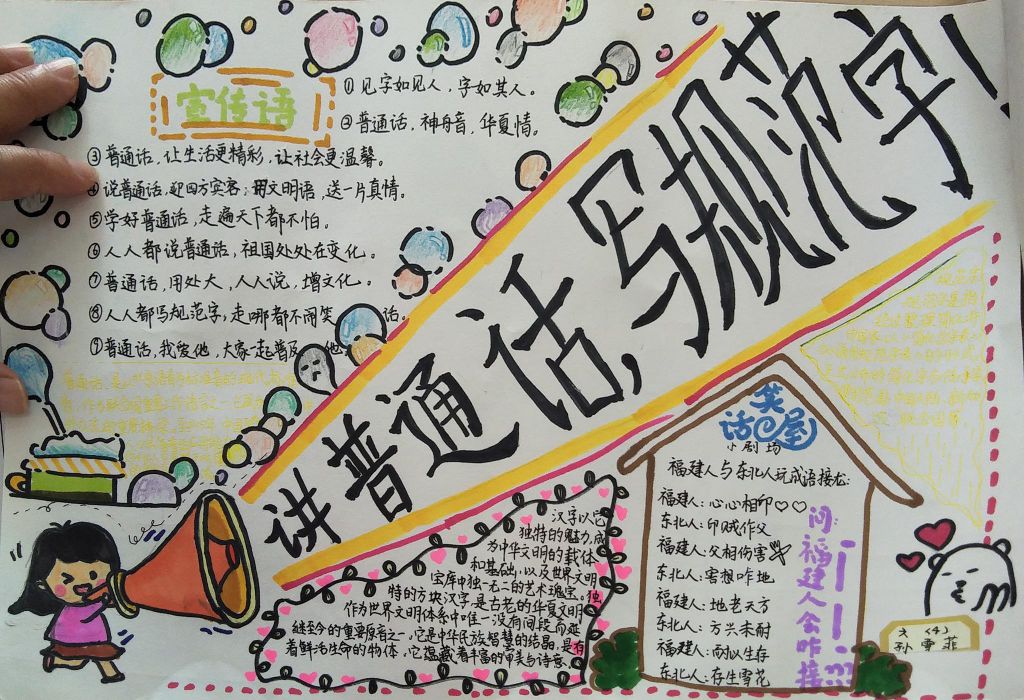 讲普通话,写规范字!
宣传语
①见字如见人,字如其人。
②普通话,神舟音,华夏情。
③普通话,让生活更精彩,让社会更温馨。
④说普通话,迎四方宾客;用文明语,送一片真情。
⑤学好普通话,走遍天下都不怕。
⑥人人都说普通话,祖国处处在变化。
⑦普通话,用处大,人人说,增文化。
⑧人人都写规范字,走哪都不闹笑话。
⑨普通话,我爱他,大家一起普及他
汉字以它
独特的魅力,成
为中华文明的载体
和基础,以及世界文明
宝库中独一无二的艺术瑰宝。独
特的方块汉字,是古老的华夏文明
作为世界文明体系中唯一没有间段而延
继至今的重要原有之一,它是中华民族智慧的结晶,是有
着鲜活生命的物体,它蕴藏着丰富的审美与诗意。
笑话屋
小剧场
福建人与东北人玩成语接龙:
福建人:心心相印♡♡
东北人:印贼作父
福建人:父相伤害
东北人:害想咋地
福建人:地老天方
东北人:方兴未耐
福建人:耐以生存
东北人:存生雪花
问:福建人会咋接???
六(4)
孙雪菲